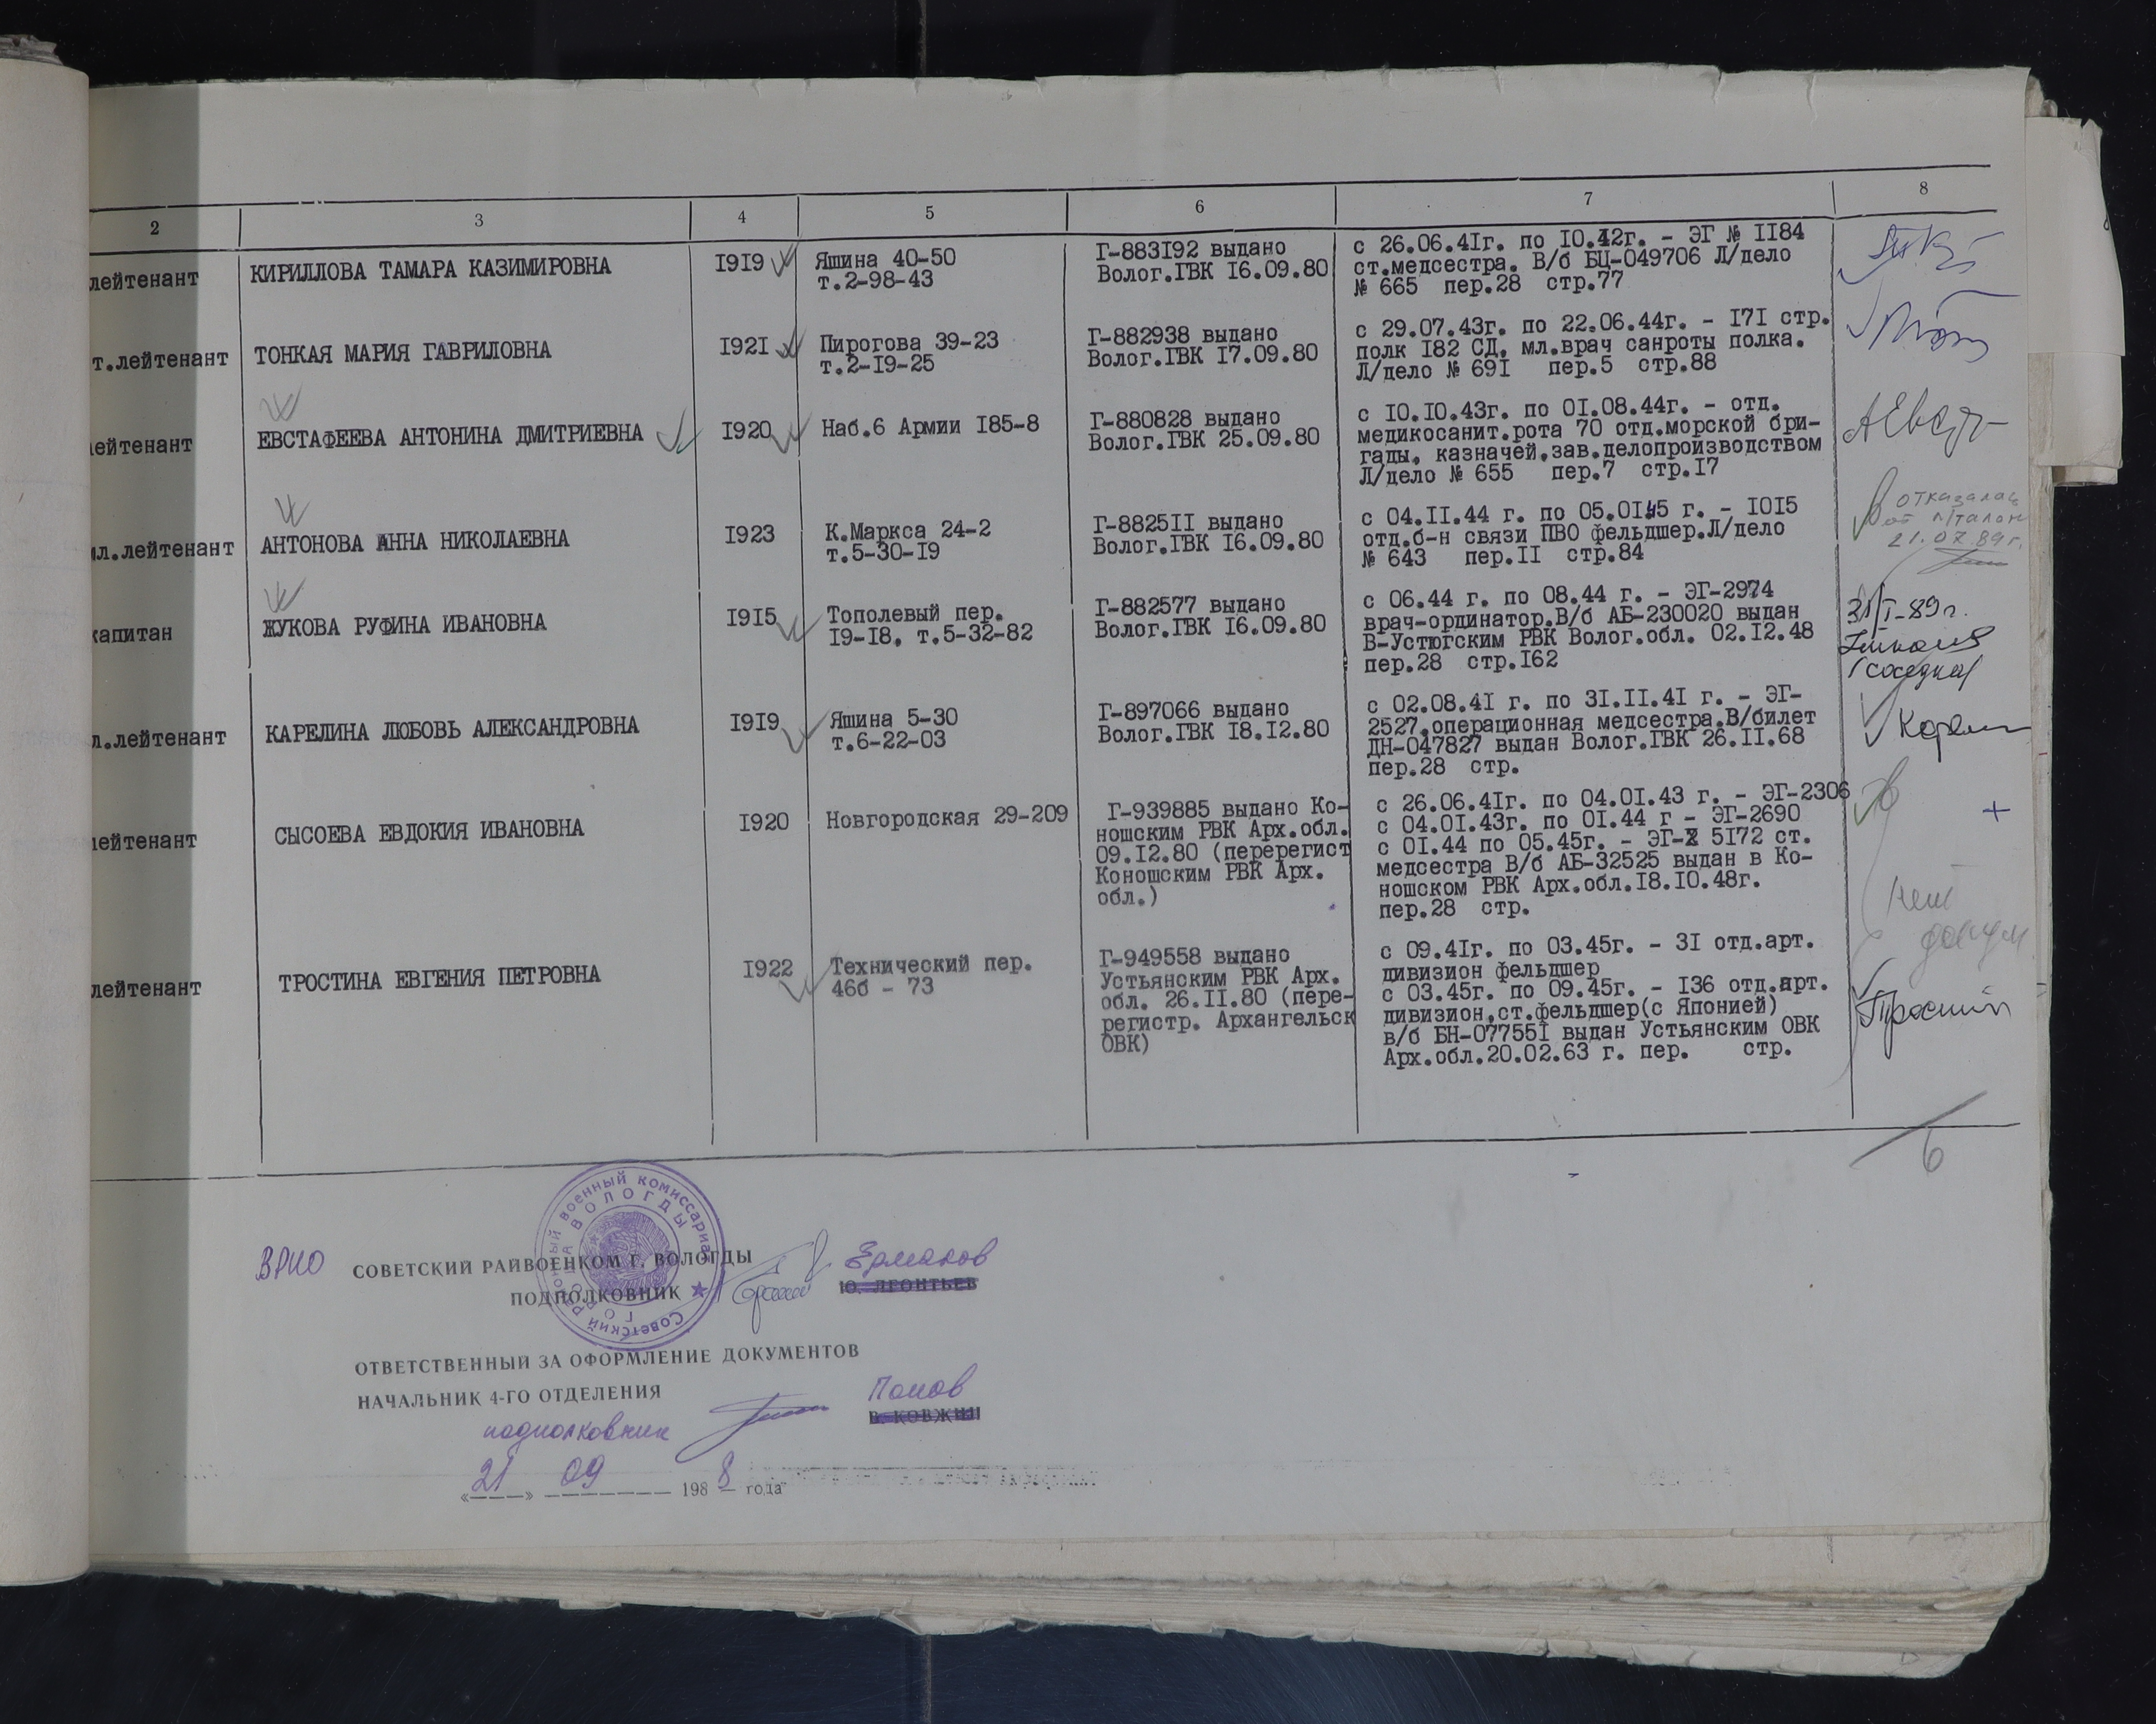 2 3 4 5 6 7 8
лейтенант КИРИЛЛОВА ТАМАРА КАЗИМИРОВНА I9I9 Яшина 40-50 Г-883I92 выдано с 26.06.4Iг. по I0.42г. - ЭГ № II84
т.2-98-43 Волог.ГВК I6.09.80 ст.медсестра. В/б БЦ-049706 Л/дело
№ 665 пер.28 стр.77
т.лейтенант ТОНКАЯ МАРИЯ ГАВРИЛОВНА I92I Пирогова 39-23 Г-882938 выдано с 29.07.43г. по 22.06.44г. - I7I стр.
т.2-I9-25 Волог.ГВК I7.09.80 полк I82 СД, мл.врач санроты полка.
Л/дело № 69I пер.5 стр.88
лейтенант ЕВСТАФЕЕВА АНТОНИНА ДМИТРИЕВНА I920 Наб.6 Армии I85-8 Г-880828 выдано с I0.I0.43г. по 0I.08.44г. - отд.
Волог.ГВК 25.09.80 медикосанит.рота 70 отд.морской бри-
гады, казначей,зав.делопроизводством
Л/дело № 655 пер.7 стр.I7
мл.лейтенант АНТОНОВА АННА НИКОЛАЕВНА I923 К.Маркса 24-2 Г-8825II выдано с 04.II.44 г. по 05.0I.45 г. - I0I5 отказалась
т.5-30-I9 Волог.ГВК I6.09.80 отд.б-н связи ПВО фельдшер.Л/дело от
№ 643 пер.II стр.84 21.07.89г.
капитан ЖУКОВА РУФИНА ИВАНОВНА I9I5 Тополевый пер. Г-882577 выдано с 06.44 г. по 08.44 г. - ЭГ-2974
I9-I8, т.5-32-82 Волог.ГВК I6.09.80 врач-ординатор.В/б АБ-230020 выдан I-89г.
В-Устюгским РВК Волог.обл. 02.I2.48
пер.28 стр.I62 (соседка)
л.лейтенант КАРЕЛИНА ЛЮБОВЬ АЛЕКСАНДРОВНА I9I9 Яшина 5-30 Г-897066 выдано с 02.08.4I г. по 3I.II.4I г. - ЭГ-
т.6-22-03 Волог.ГВК I8.I2.80 2527,операционная медсестра.В/билет
ДН-047827 выдан Волог.ГВК 26.II.68
пер.28 стр.
лейтенант СЫСОЕВА ЕВДОКИЯ ИВАНОВНА I920 Новгородская 29-209 Г-939885 выдано Ко- с 26.06.4Iг. по 04.0I.43 г. - ЭГ-2306 +
ношским РВК Арх.обл. с 04.0I.43г. по 0I.44 г - ЭГ-2690
09.I2.80 (перерегист с 0I.44 по 05.45г. - ЭГ- 5I72 ст.
Коношским РВК Арх. медсестра В/б АБ-32525 выдан в Ко-
обл.) ношском РВК Арх.обл.I8.I0.48г. нет
пер.28 стр.
лейтенант ТРОСТИНА ЕВГЕНИЯ ПЕТРОВНА I922 Технический пер. Г-949558 выдано с 09.4Iг. по 03.45г. - 3I отд.арт.
46б - 73 Устьянским РВК Арх. дивизион фельдшер
обл. 26.II.80 (пере- с 03.45г. по 09.45г. - I36 отд.арт.
регистр. Архангельск дивизион,ст.фельдшер(с Японией)
ОВК) в/б БН-07755I выдан Устьянским ОВК
Арх.обл.20.02.63 г. пер. стр.
6
ВРИО СОВЕТСКИЙ РАЙВОЕНКОМ Г. ВОЛОГДЫ Ермаков
ПОДПОЛКОВНИК Ю. ЛЕОНТЬЕВ
ОТВЕТСТВЕННЫЙ ЗА ОФОРМЛЕНИЕ ДОКУМЕНТОВ
НАЧАЛЬНИК 4-ГО ОТДЕЛЕНИЯ Попов
подполковник В. КОВЖИН
«21» 09 1988 года